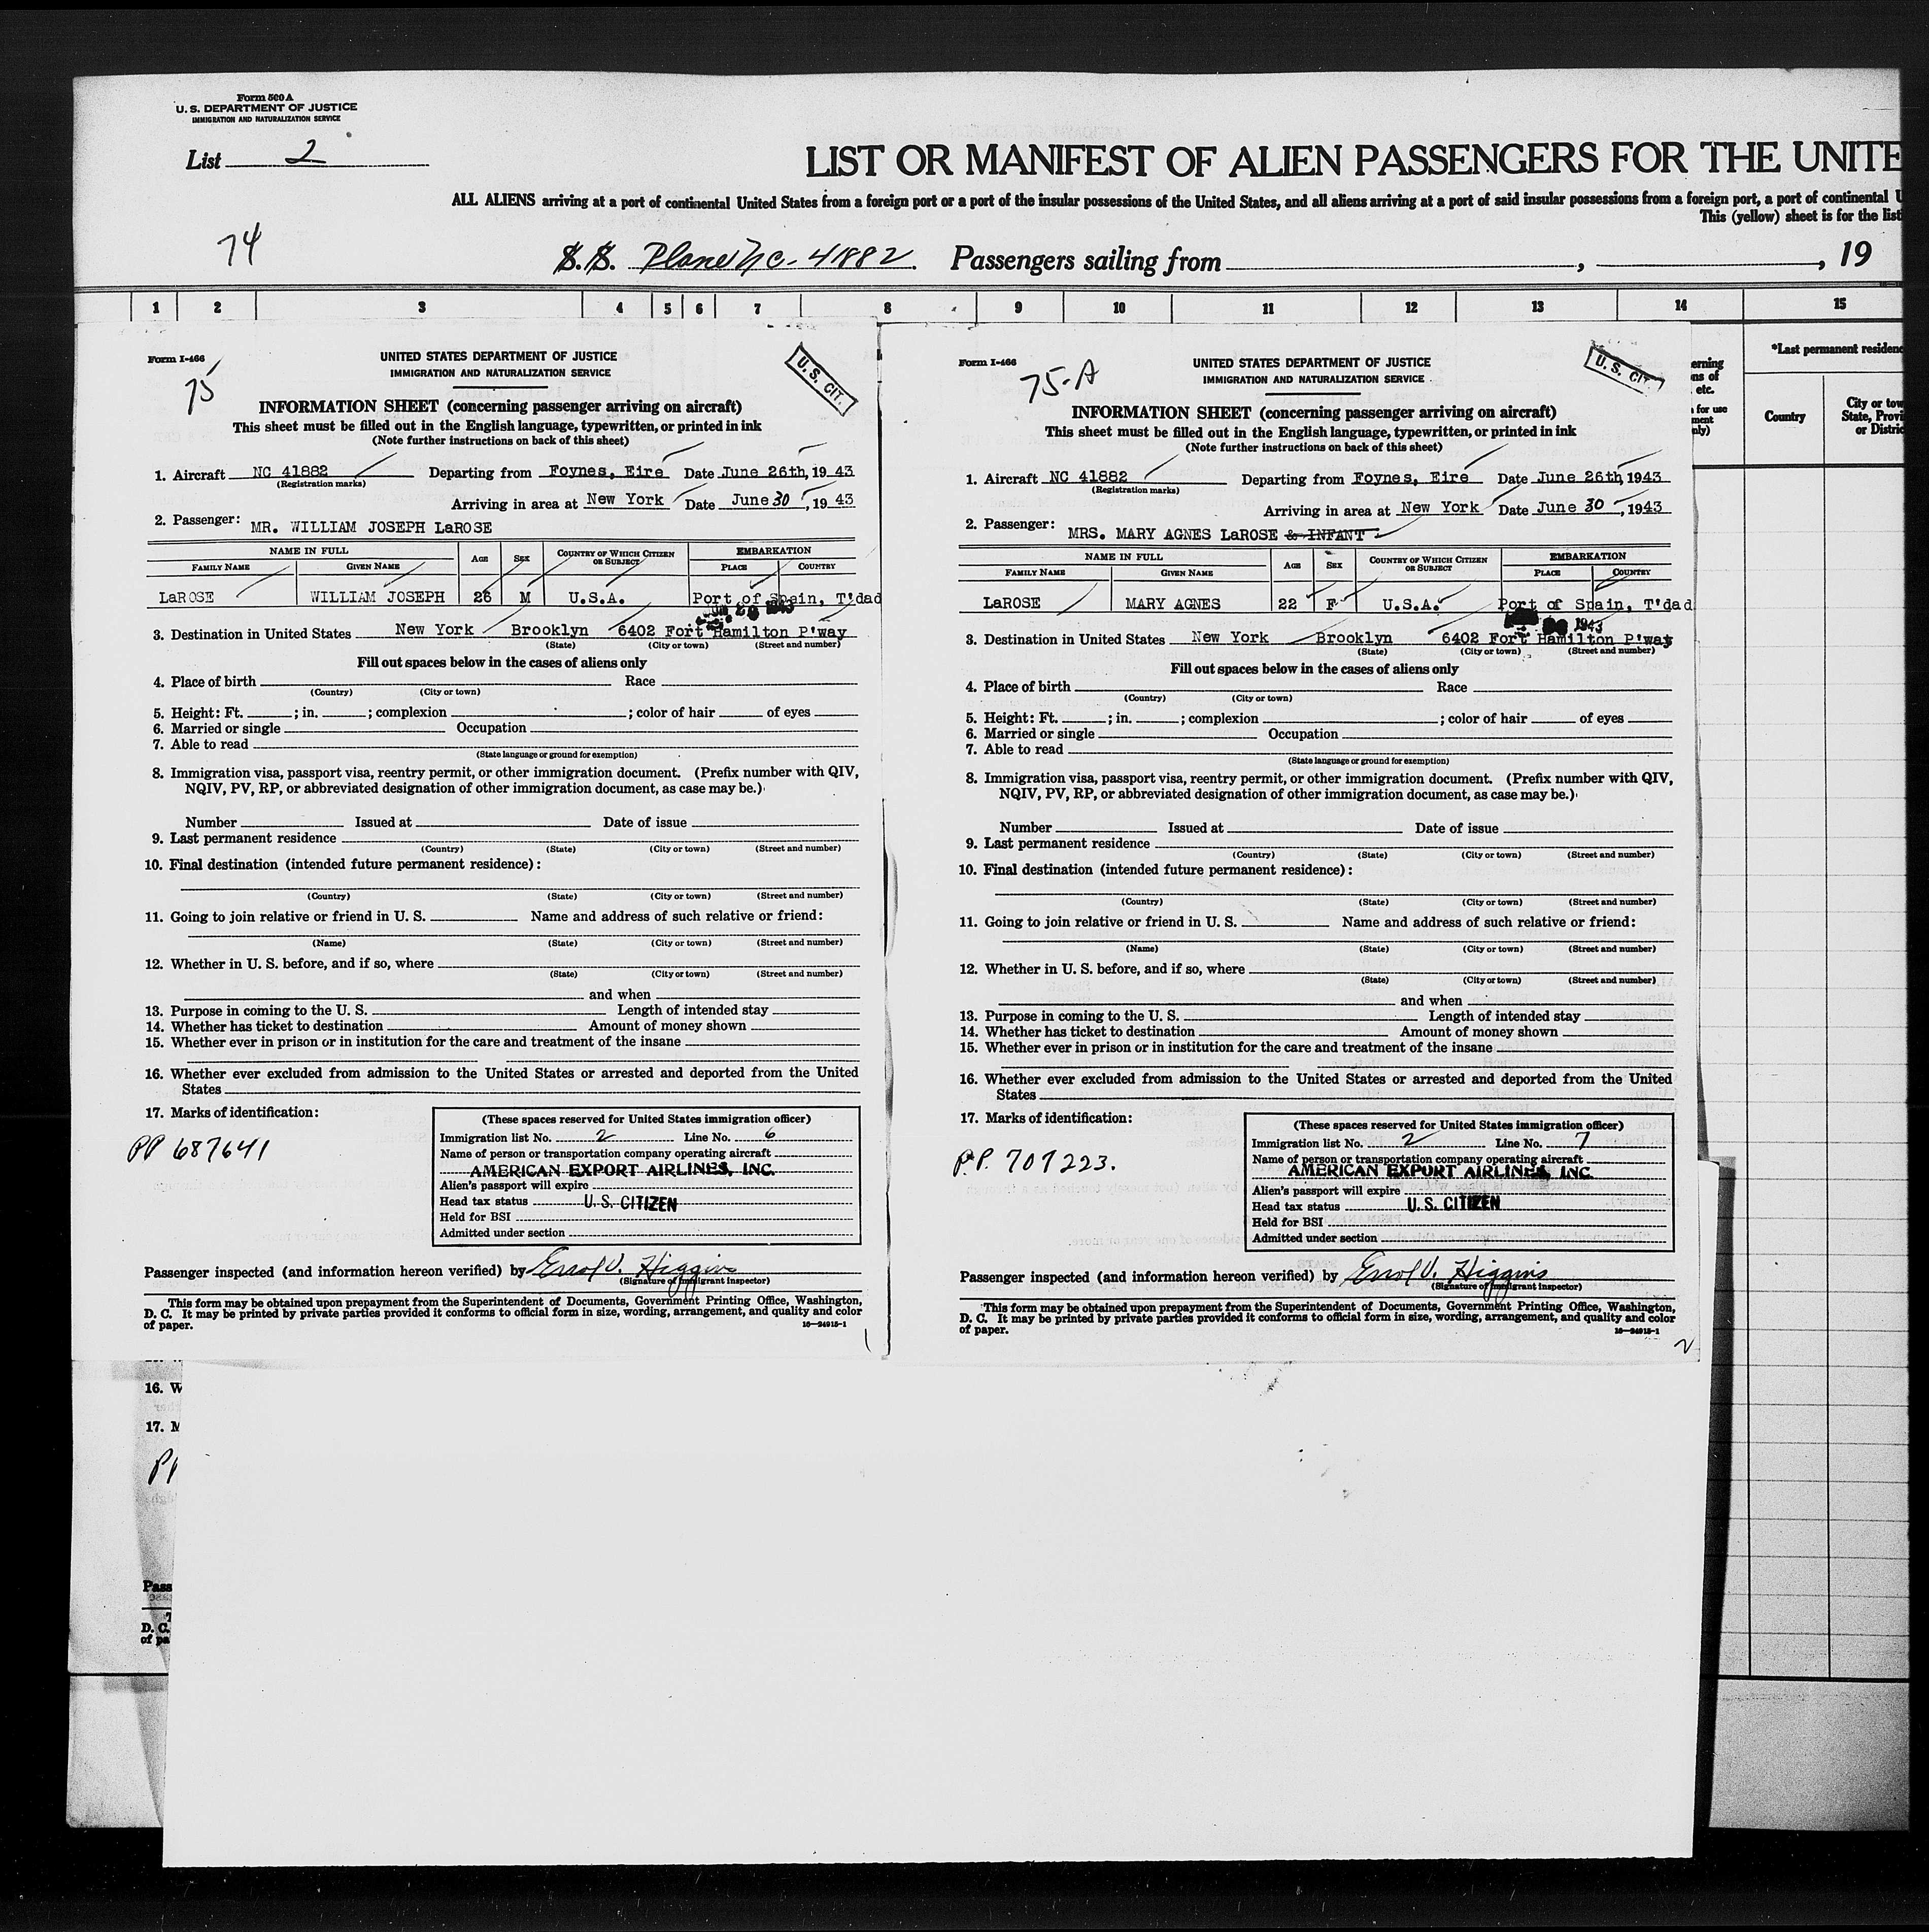 Form 500 A
U. S. DEPARTMENT OF JUSTICE
IMMIGRATION AND NATURALIZATION SERVICE
List 2
LIST OR MANIFEST OF ALIEN PASSENGERS FOR THE UNITE
ALL ALIENS arriving at a port of continental United States from a foreign port or a port of the insular possessions of the United States, and all aliens arriving at a port of said insular possessions from a foreign port, a port of continental U
This (yellow) sheet is for the list
74
S.S. Plane NC-41882 Passengers sailing from , , 19
1 2 3 4 5 6 7 8 9 10 11 12 13 14 15
Form I-466
75
UNITED STATES DEPARTMENT OF JUSTICE
IMMIGRATION AND NATURALIZATION SERVICE
U. S. CIT.
INFORMATION SHEET (concerning passenger arriving on aircraft)
This sheet must be filled out in the English language, typewritten, or printed in ink
(Note further instructions on back of this sheet)
1. Aircraft NC 41882 Departing from Foynes, Eire Date June 26th, 19 43
(Registration marks)
Arriving in area at New York Date June 30, 19 43
2. Passenger: MR. WILLIAM JOSEPH LaROSE
NAME IN FULL AGE SEX COUNTRY OF WHICH CITIZEN OR SUBJECT EMBARKATION
FAMILY NAME GIVEN NAME PLACE COUNTRY
LaROSE WILLIAM JOSEPH 26 M U.S.A. Port of Spain, T'dad
1943
3. Destination in United States New York Brooklyn 6402 Fort Hamilton P'way
(State) (City or town) (Street and number)
Fill out spaces below in the cases of aliens only
4. Place of birth Race
(Country) (City or town)
5. Height: Ft. ; in. ; complexion ; color of hair of eyes
6. Married or single Occupation
7. Able to read
(State language or ground for exemption)
8. Immigration visa, passport visa, reentry permit, or other immigration document. (Prefix number with QIV,
NQIV, PV, RP, or abbreviated designation of other immigration document, as case may be.)
Number Issued at Date of issue
9. Last permanent residence
(Country) (State) (City or town) (Street and number)
10. Final destination (intended future permanent residence):
(Country) (State) (City or town) (Street and number)
11. Going to join relative or friend in U. S. Name and address of such relative or friend:
(Name) (State) (City or town) (Street and number)
12. Whether in U. S. before, and if so, where
(State) (City or town) (Street and number)
and when
13. Purpose in coming to the U. S. Length of intended stay
14. Whether has ticket to destination Amount of money shown
15. Whether ever in prison or in institution for the care and treatment of the insane
16. Whether ever excluded from admission to the United States or arrested and deported from the United
States
17. Marks of identification:
PP 687641
(These spaces reserved for United States immigration officer)
Immigration list No. 2 Line No. 6
Name of person or transportation company operating aircraft
AMERICAN EXPORT AIRLINES, INC.
Alien's passport will expire
Head tax status U. S. CITIZEN
Held for BSI
Admitted under section
Passenger inspected (and information hereon verified) by Errol V. Higgins
(Signature of immigrant inspector)
This form may be obtained upon prepayment from the Superintendent of Documents, Government Printing Office, Washington,
D. C. It may be printed by private parties provided it conforms to official form in size, wording, arrangement, and quality and color
of paper. 16—24915-1
1
Form I-466
75-A
UNITED STATES DEPARTMENT OF JUSTICE
IMMIGRATION AND NATURALIZATION SERVICE
U. S. CIT.
INFORMATION SHEET (concerning passenger arriving on aircraft)
This sheet must be filled out in the English language, typewritten, or printed in ink
(Note further instructions on back of this sheet)
1. Aircraft NC 41882 Departing from Foynes, Eire Date June 26th, 1943
(Registration marks)
Arriving in area at New York Date June 30, 1943
2. Passenger: MRS. MARY AGNES LaROSE & INFANT
NAME IN FULL AGE SEX COUNTRY OF WHICH CITIZEN OR SUBJECT EMBARKATION
FAMILY NAME GIVEN NAME PLACE COUNTRY
LaROSE MARY AGNES 22 F U.S.A. Port of Spain, T'dad
1943
3. Destination in United States New York Brooklyn 6402 Fort Hamilton P'way
(State) (City or town) (Street and number)
Fill out spaces below in the cases of aliens only
4. Place of birth Race
(Country) (City or town)
5. Height: Ft. ; in. ; complexion ; color of hair of eyes
6. Married or single Occupation
7. Able to read
(State language or ground for exemption)
8. Immigration visa, passport visa, reentry permit, or other immigration document. (Prefix number with QIV,
NQIV, PV, RP, or abbreviated designation of other immigration document, as case may be.)
Number Issued at Date of issue
9. Last permanent residence
(Country) (State) (City or town) (Street and number)
10. Final destination (intended future permanent residence):
(Country) (State) (City or town) (Street and number)
11. Going to join relative or friend in U. S. Name and address of such relative or friend:
(Name) (State) (City or town) (Street and number)
12. Whether in U. S. before, and if so, where
(State) (City or town) (Street and number)
and when
13. Purpose in coming to the U. S. Length of intended stay
14. Whether has ticket to destination Amount of money shown
15. Whether ever in prison or in institution for the care and treatment of the insane
16. Whether ever excluded from admission to the United States or arrested and deported from the United
States
17. Marks of identification:
P.P. 707223.
(These spaces reserved for United States immigration officer)
Immigration list No. 2 Line No. 7
Name of person or transportation company operating aircraft
AMERICAN EXPORT AIRLINES, INC.
Alien's passport will expire
Head tax status U. S. CITIZEN
Held for BSI
Admitted under section
Passenger inspected (and information hereon verified) by Errol V. Higgins
(Signature of immigrant inspector)
This form may be obtained upon prepayment from the Superintendent of Documents, Government Printing Office, Washington,
D. C. It may be printed by private parties provided it conforms to official form in size, wording, arrangement, and quality and color
of paper. 16—24915-1
2
erning
ns of
etc.
for use
ment
nly)
*Last permanent residenc
Country
City or tow
State, Provi
or Distric
16. W
17. M
PP
Pass
D. C.
of pa